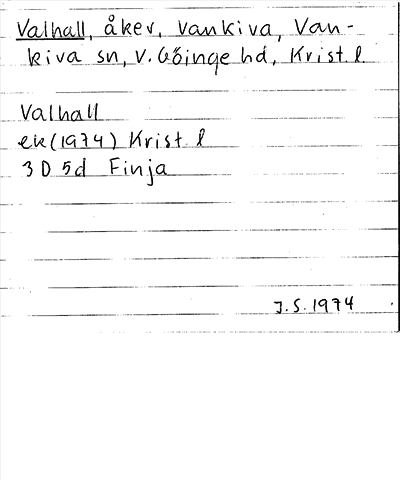 Valhall, åker, Vankiva, Van-
kiva sn, V. Göinge hd, Krist. l.
Valhall
ek (1974) Krist. l
3 D 5d Finja
J.S. 1974